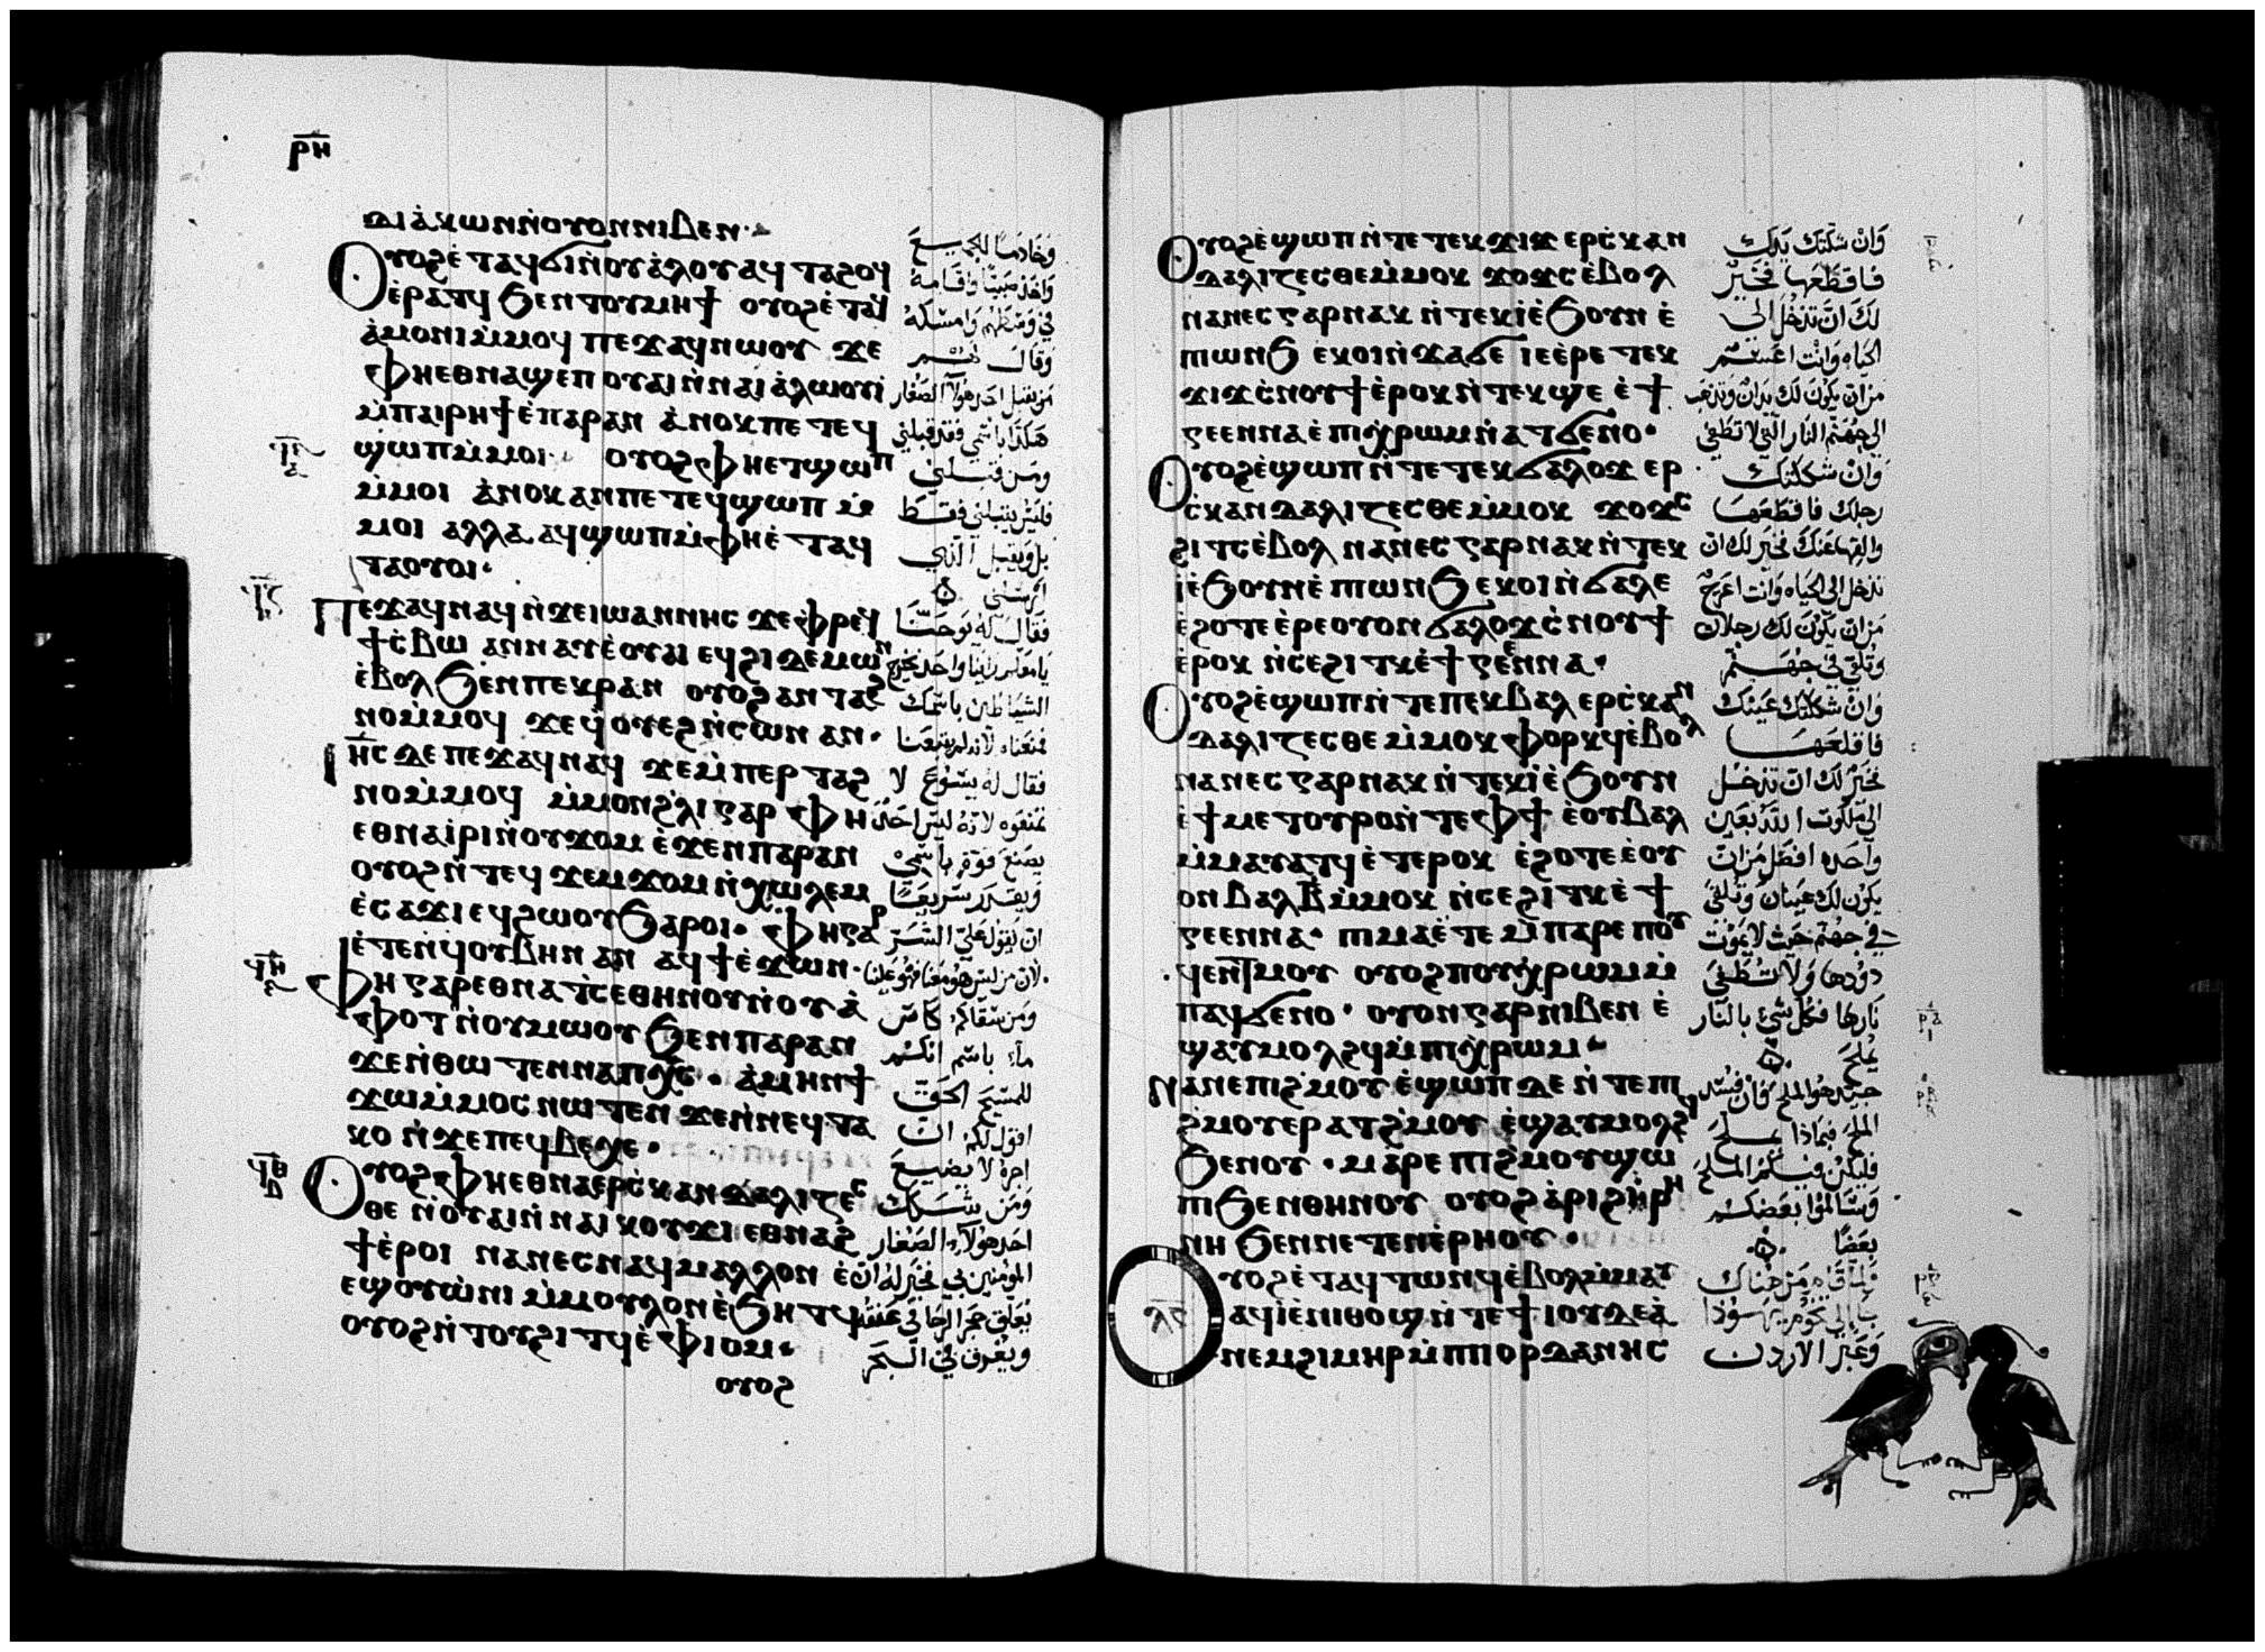 ⲣⲏ
ⲇⲓⲁ̀ⲕⲱⲛ ⲛ̀ⲟⲩⲟⲛ ⲛⲓⲃⲉⲛ
Ⲟⲩⲟϩ ⲉ̀ⲧⲁϥϭⲓ ⲛ̀ⲟⲩⲁ̀ⲗⲟⲩ ⲁϥⲧⲁϩⲟϥ
ⲉ̀ⲣⲁⲧϥ ϧⲉⲛ ⲧⲟⲩⲙⲏϯ ⲟⲩⲟϩ ⲉ̀ⲧⲁϥ
ⲁ̀ⲙⲟⲛⲓ ⲙ̀ⲙⲟϥ ⲡⲉϫⲁϥ ⲛⲱⲟⲩ ϫⲉ
ⲫⲏ ⲉⲑⲛⲁϣⲉⲡ ⲟⲩⲁⲓ ⲛ̀ⲛⲁⲓ ⲁ̀ⲗⲱⲟⲩⲓ̀
ⲙ̀ⲡⲁⲓⲣⲏϯ ⲉ̀ⲡⲁⲣⲁⲛ ⲁ̀ⲛⲟⲕ ⲡⲉⲧⲉϥ
ϣⲱⲡ ⲙ̀ⲙⲟⲓ· ⲟⲩⲟϩ ⲫⲏ ⲉⲧϣⲱⲡ
ⲙ̀ⲙⲟⲓ ⲁ̀ⲛⲟⲕ ⲁⲛ ⲡⲉⲧⲉϥϣⲱⲡ ⲙ̀
ⲙⲟⲓ ⲁⲗⲗⲁ ⲁϥϣⲱⲡ ⲙ̀ⲫⲏ ⲉ̀ⲧⲁϥ
ⲧⲁⲟⲩⲟⲓ·
Ⲡⲉϫⲁϥ ⲛⲁϥ ⲛ̀ϫⲉ ⲓⲱⲁⲛⲛⲏⲥ ϫⲉ ⲫⲣⲉϥ
ϯⲥ̀ⲃⲱ ⲁⲛⲛⲁⲩ ⲉ̀ⲟⲩⲁⲓ ⲉϥϩⲓ ⲇⲉⲙⲱⲛ
ⲉ̀ⲃⲟⲗ ϧⲉⲛ ⲡⲉⲕⲣⲁⲛ ⲟⲩⲟϩ ⲁⲛⲧⲁϩ
ⲛⲟ ⲙ̀ⲙⲟϥ ϫⲉ ϥ̀ⲟⲩⲉϩ ⲛ̀ⲥⲱⲛ ⲁⲛ·
Ⲓⲏ̅ⲥ ⲇⲉ ⲡⲉϫⲁϥ ⲛⲁϥ ϫⲉ ⲙ̀ⲡⲉⲣⲧⲁϩ
ⲛⲟ ⲙ̀ⲙⲟϥ ⲙ̀ⲙⲟⲛ ϩ̀ⲗⲓ ⲅⲁⲣ ⲫⲏ
ⲉⲑⲛⲁⲓ̀ⲣⲓ ⲛ̀ⲟⲩϫⲟⲙ ⲉ̀ϫⲉⲛ ⲡⲁⲣⲁⲛ
ⲟⲩⲟϩ ⲛ̀ⲧⲉϥϫⲉⲙϫⲟⲙ ⲛ̀ⲭⲱⲗⲉⲙ
ⲉ̀ⲥⲁϫⲓ ⲉϥϩⲱⲟⲩ ϧⲁⲣⲟⲓ· ⲫⲏ ⲅⲁⲣ
ⲉ̀ⲧⲉⲛϥ̀ⲟⲩⲃⲏⲛ ⲁⲛ ⲁϥϯ ⲉ̀ϫⲱⲛ·
Ⲫⲏ ⲅⲁⲣ ⲉⲑⲛⲁⲧⲥⲉ ⲑⲏⲛⲟⲩ ⲛ̀ⲟⲩⲁ̀
ⲫⲟⲧ ⲛ̀ⲟⲩⲙⲱⲟⲩ ϧⲉⲛ ⲡⲁⲣⲁⲛ
ϫⲉ ⲛ̀ⲑⲱⲧⲉⲛ ⲛⲁ ⲡⲭ̅ⲥ· ⲁ̀ⲙⲏⲛ ϯ
ϫⲱ ⲙ̀ⲙⲟⲥ ⲛⲱⲧⲉⲛ ϫⲉ ⲛ̀ⲛⲉϥⲧⲁ
ⲕⲟ ⲛ̀ϫⲉ ⲡⲉϥⲃⲉⲭⲉ·
Ⲟⲩⲟϩ ⲫⲏ ⲉⲑⲛⲁⲉⲣⲥ̀ⲕⲁⲛⲇⲁⲗⲓⲍⲉⲥ
ⲑⲉ ⲛ̀ⲟⲩⲁⲓ ⲛ̀ⲛⲁⲓ ⲕⲟⲩϫⲓ ⲉⲑⲛⲁϩ
ϯ ⲉ̀ⲣⲟⲓ ⲛⲁⲛⲉⲥ ⲛⲁϥ ⲙⲁⲗⲗⲟⲛ ⲉ̀
ⲉϣ ⲟⲩⲱ̀ⲛⲓ ⲙ̀ⲙⲟⲩⲗⲟⲛ ⲉ̀ϧⲏⲧϥ
ⲟⲩⲟϩ ⲛ̀ⲧⲟⲩϩⲓⲧϥ ⲉ̀ⲫⲓⲟⲙ·
ⲟⲩⲟϩ
وخادما للجميع
واخذ صبيًا واقامه
في وسطهم وامسكه
وقال لهم
من يقبل احد هولآ الصغار
هكذا باسمي فقد قبلني
ومن قبلني
فليس يقبلني فقط
بل ويقبل الذي
ارسلني
فقال له يوحنا
يا معلم راينا واحد يخرج
الشياطين باسمك
فمنعناه لانه لم يتبعنا
فقال له يسوع لا
تمنعوه لانه ليس احد
يصنع قوة باسمي
ويقدر سريعًا
ان يقول عليّ الشر
لان من ليس هو معنا فهو علينا
ومن سقاكم كاس
مآء باسم انكم
للمسيح الحق
اقول لكم ان
اجره لا يضيع
ومن شكك
احد هولآء الصغار
المؤمنين بي فخير له ان
يعلق حجر الرحا في عنقه
ويغرق في البحر
Ⲟⲩⲟϩ ⲉ̀ϣⲱⲡ ⲛ̀ⲧⲉ ⲧⲉⲕϫⲓϫ ⲉⲣⲥ̀ⲕⲁⲛ
ⲇⲁⲗⲓⲍⲉⲥⲑⲉ ⲙ̀ⲙⲟⲕ ϫⲟϫⲥ ⲉ̀ⲃⲟⲗ
ⲛⲁⲛⲉⲥ ⲅⲁⲣ ⲛⲁⲕ ⲛ̀ⲧⲉⲕⲓ̀ ⲉ̀ϧⲟⲩⲛ ⲉ̀
ⲡⲓⲱⲛϧ ⲉⲕⲟⲓ ⲛ̀ϫⲁϭⲉ ⲓⲉ ⲉ̀ⲣⲉ ⲧⲉⲕ
ϫⲓϫ ⲥ̀ⲛⲟⲩϯ ⲉ̀ⲣⲟⲕ ⲛ̀ⲧⲉⲕϣⲉ ⲉ̀ϯ
ⲅⲉⲉⲛⲛⲁ ⲉ̀ⲡⲓⲭ̀ⲣⲱⲙ ⲛ̀ⲁⲧϭⲉⲛⲟ·
Ⲟⲩⲟϩ ⲉ̀ϣⲱⲡ ⲛ̀ⲧⲉ ⲧⲉⲕϭⲁⲗⲟϫ ⲉⲣ
ⲥ̀ⲕⲁⲛⲇⲁⲗⲓⲍⲉⲥⲑⲉ ⲙ̀ⲙⲟⲕ ϫⲟϫⲥ
ϩⲓⲧⲥ ⲉ̀ⲃⲟⲗ ⲛⲁⲛⲉⲥ ⲅⲁⲣ ⲛⲁⲕ ⲛ̀ⲧⲉⲕ
ⲓ̀ ⲉ̀ϧⲟⲩⲛ ⲉ̀ⲡⲓⲱⲛϧ ⲉⲕⲟⲓ ⲛ̀ϭⲁⲗⲉ
ⲉ̀ϩⲟⲧⲉ ⲉ̀ⲣⲉ ⲟⲩⲟⲛ ϭⲁⲗⲟϫ ⲥ̀ⲛⲟⲩϯ
ⲉ̀ⲣⲟⲕ ⲛ̀ⲥⲉϩⲓⲧⲕ ⲉ̀ϯⲅⲉⲉⲛⲛⲁ·
Ⲟⲩⲟϩ ⲉ̀ϣⲱⲡ ⲛ̀ⲧⲉ ⲡⲉⲕⲃⲁⲗ ⲉⲣⲥ̀ⲕⲁⲛ
ⲇⲁⲗⲓⲍⲉⲥⲑⲉ ⲙ̀ⲙⲟⲕ ⲫⲟⲣⲕϥ ⲉ̀ⲃⲟⲗ
ⲛⲁⲛⲉⲥ ⲅⲁⲣ ⲛⲁⲕ ⲛ̀ⲧⲉⲕⲓ̀ ⲉ̀ϧⲟⲩⲛ
ⲉ̀ϯⲙⲉⲧⲟⲩⲣⲟ ⲛ̀ⲧⲉ ⲫϯ ⲉ̀ⲟⲩⲃⲁⲗ
ⲙ̀ⲙⲁⲩⲁⲧϥ ⲉ̀ⲧⲉⲣⲟⲕ ⲉ̀ϩⲟⲧⲉ ⲉ̀ⲟⲩ
ⲟⲛ ⲃⲁⲗ ⲃ̅ ⲙ̀ⲙⲟⲕ ⲛ̀ⲥⲉϩⲓⲧⲕ ⲉ̀ϯ
ⲅⲉⲉⲛⲛⲁ· ⲡⲓⲙⲁ ⲉ̀ⲧⲉ ⲙ̀ⲡⲁⲣⲉ ⲡⲟⲩ
ϥⲉⲛⲧ ⲙⲟⲩ ⲟⲩⲟϩ ⲡⲟⲩⲭ̀ⲣⲱⲙ ⲙ̀
ⲡⲁϥϭⲉⲛⲟ· ⲟⲩⲟⲛ ⲅⲁⲣ ⲛⲓⲃⲉⲛ ⲉ̀
ϣⲁⲩⲙⲟⲗϩϥ ⲙ̀ⲡⲓⲭ̀ⲣⲱⲙ·
Ⲛⲁⲛⲉ ⲡⲓϩⲙⲟⲩ ⲉ̀ϣⲱⲡ ⲇⲉ ⲛ̀ⲧⲉ ⲡⲓ
ϩ̀ⲙⲟⲩ ⲉⲣⲁⲧϩ̀ⲙⲟⲩ ⲉ̀ϣⲁⲩⲙⲟⲗϩϥ
ϧⲉⲛ ⲟⲩ· ⲙⲁⲣⲉ ⲡⲓϩⲙⲟⲩ ϣⲱ
ⲡⲓ ϧⲉⲛ ⲑⲏⲛⲟⲩ ⲟⲩⲟϩ ⲁ̀ⲣⲓϩⲓⲣⲏ
ⲛⲏ ϧⲉⲛ ⲛⲉⲧⲉⲛⲉ̀ⲣⲏⲟⲩ·
Ⲟⲩⲟϩ ⲉ̀ⲧⲁϥⲧⲱⲛϥ ⲉ̀ⲃⲟⲗ ⲙ̀ⲙⲁⲩ
ⲁϥⲓ̀ ⲉ̀ⲛⲓⲑⲟϣ ⲛ̀ⲧⲉ ϯⲓⲟⲩⲇⲉⲁ̀
ⲛⲉⲙ ϩⲓⲙⲏⲣ ⲙ̀ⲡⲓⲟⲣⲇⲁⲛⲏⲥ
وان شككتك يدك
فاقطعها فخير
لك ان تدخل الى
الحياه وانت اعسم
من ان يكون لك يدان وتذهب
الى جهنم النار التي لا تطفى
وان شككتك
رجلك فاقطعها
والقها عنك فخير لك ان
تدخل الى الحياه وانت اعرج
من ان يكون لك رجلان
وتلقى في جهنم
وان شككتك عينك
فاقلعها
فخير لك ان تدخل
الى ملكوت الله بعين
واحده افضل من ان
يكون لك عينان وتلقى
في جهنم حيث لا يموت
دودها ولا تطفى
نارها فكل شي بالنار
يملح
جيد هو الملح فان فسد
الملح فبماذا يملح
فليكن فيكم الملح
وسالموا بعضكم
بعضا
من هناك
وعبر الاردن